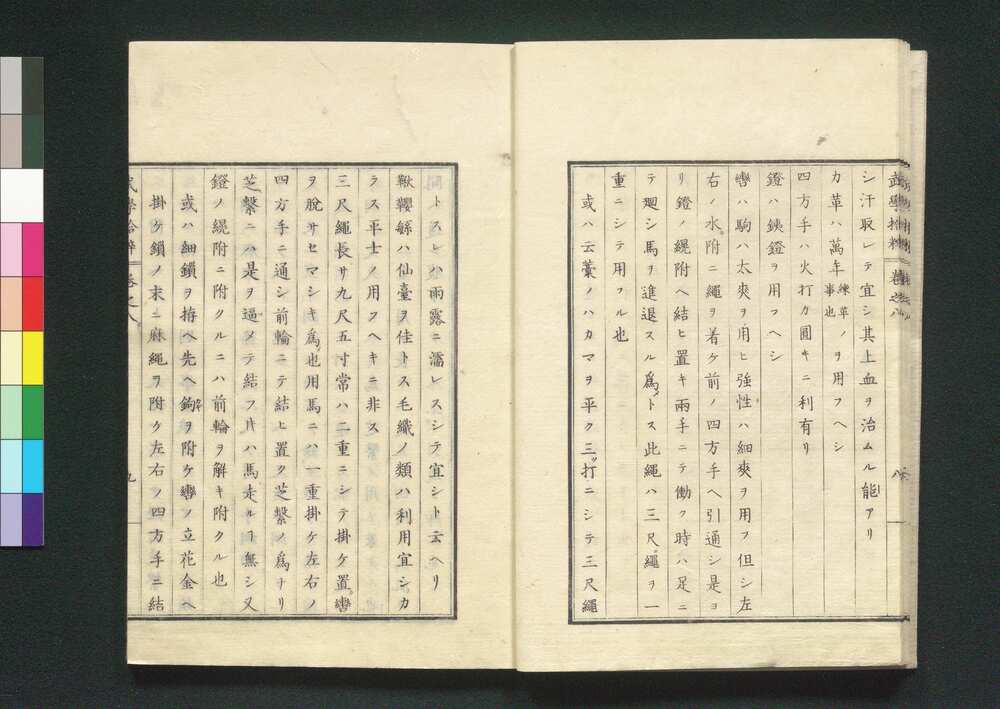 武學拾粹 卷之八 八
シ汗取レテ宜シ其上血ヲ治ムル能アリ
力革ハ萬年練草ノ事也ヲ用フヘシ
四方手ハ火打カ圓キニ利有リ
鐙ハ鋏鐙ヲ用フヘシ
轡ハ駒ハ太爽ヲ用ヒ強性ハ細爽ヲ用フ但シ左
右ノ水附ニ繩ヲ着ケ前ノ四方手ヘ引通シ是ヨ
リ鐙ノ緄附ヘ結ヒ置キ兩手ニテ働ク時ハ足ニ
テ廻シ馬ヲ進退スル爲トス此繩ハ三尺繩ヲ一
重ニシテ用フル也
或ハ云藁ノハカマヲ平ク三ツ打ニシテ三尺繩
同トスレハ雨露ニ濡レスシテ宜シト云ヘリ
鞦韁緐ハ仙臺ヲ佳トス毛織ノ類ハ利用宜シカ
ラス平士ノ用フヘキニ非ス
三尺繩長サ九尺五寸常ハ二重ニシテ掛ケ置轡
ヲ脫サセマシキ爲也用馬ニハ一重掛ケ左右ノ
四方手ニ通シ前輪ニテ結ヒ置ク芝繫ノ爲ナリ
芝繫ニハ是ヲ逼メテ結フ片ハ馬走ルヿ無シ又
鐙ノ緄附ニ附クルニハ前輪ヲ解キ附クル也
或ハ細鎖ヲ拵ヘ先ヘ鉤ヲ附ケ轡ノ立花金ヘ
掛ケ鎖ノ末ニ麻繩ヲ附ケ左右ノ四方手ニ結
武學拾粹 卷之八 九